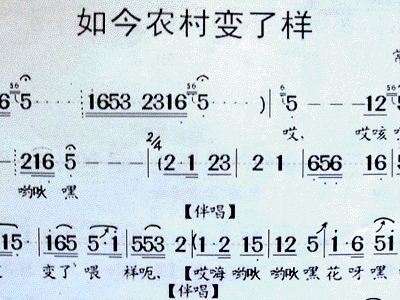 如今农村变了样
6 5 · · · · 1653 2316 5 · · · · ) 5 — — — 12 5
哎, 哎咳
216 5 — — — 2/4 (2·1 23 2 1 656 16 5
哟吙 嘿
【伴唱】
15·· 165 5·1 553 2 (1·2 15 12 5 1·6 51
变了 喂 样呃, 【哎海 哟吙 哟吙 嘿 花 呀 嘿
【伴唱】